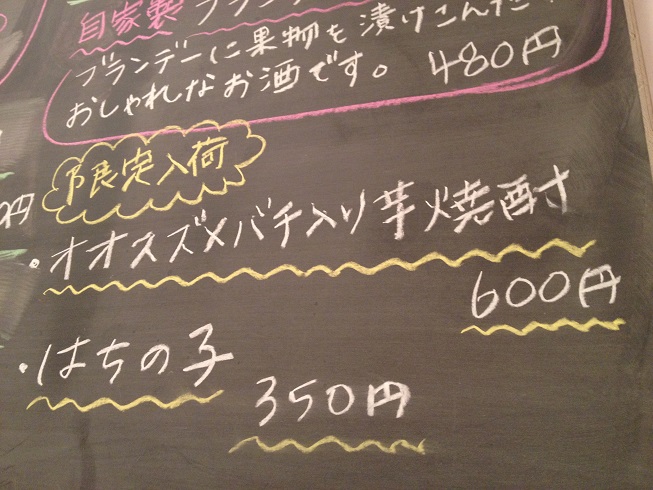 自家製 ブラン
ブランデーに果物を漬けこんだ
おしゃれなお酒です。 480円
限定入荷
・オオスズメバチ入り芋焼酎
600円
・はちの子
350円
0円